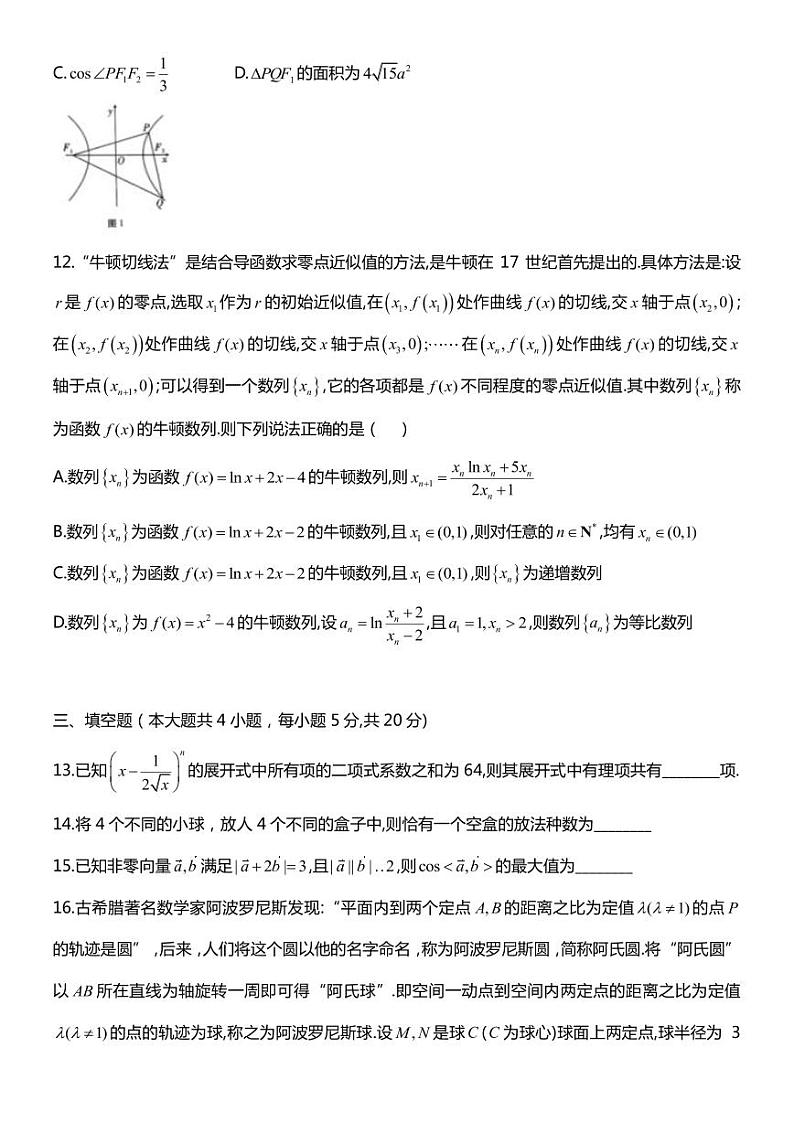 C. $\cos\angle PF_1F_2=\frac{1}{3}$ D. $\Delta PQF_1$的面积为$4\sqrt{15}a^2$
y
P
F₁ O F₂ x
Q
图1
12.“牛顿切线法”是结合导函数求零点近似值的方法,是牛顿在 17 世纪首先提出的.具体方法是:设
$r$是 $f(x)$的零点,选取 $x_1$作为$r$的初始近似值,在$(x_1,f(x_1))$处作曲线 $f(x)$的切线,交$x$轴于点$(x_2,0)$;
在$(x_2,f(x_2))$处作曲线 $f(x)$的切线,交$x$轴于点$(x_3,0)$;……在$(x_n,f(x_n))$处作曲线 $f(x)$的切线,交$x$
轴于点$(x_{n+1},0)$;可以得到一个数列$\{x_n\}$,它的各项都是 $f(x)$不同程度的零点近似值.其中数列$\{x_n\}$称
为函数 $f(x)$的牛顿数列.则下列说法正确的是( )
A.数列$\{x_n\}$为函数 $f(x)=\ln x+2x-4$的牛顿数列,则 $x_{n+1}=\frac{x_n\ln x_n+5x_n}{2x_n+1}$
B.数列$\{x_n\}$为函数 $f(x)=\ln x+2x-2$的牛顿数列,且 $x_1\in(0,1)$,则对任意的 $n\in\mathbf{N}^*$,均有 $x_n\in(0,1)$
C.数列$\{x_n\}$为函数 $f(x)=\ln x+2x-2$的牛顿数列,且 $x_1\in(0,1)$,则$\{x_n\}$为递增数列
D.数列$\{x_n\}$为 $f(x)=x^2-4$的牛顿数列,设 $a_n=\ln\frac{x_n+2}{x_n-2}$,且$a_1=1,x_n>2$,则数列$\{a_n\}$为等比数列
三、填空题(本大题共 4 小题,每小题 5 分,共 20 分)
13.已知$\left(x-\frac{1}{2\sqrt{x}}\right)^n$的展开式中所有项的二项式系数之和为 64,则其展开式中有理项共有________项.
14.将 4 个不同的小球,放人 4 个不同的盒子中,则恰有一个空盒的放法种数为________
15.已知非零向量$\vec{a},\vec{b}$满足$|\vec{a}+2\vec{b}|=3$,且$|\vec{a}||\vec{b}|‥2$,则$\cos<\vec{a},\vec{b}>$的最大值为________
16.古希腊著名数学家阿波罗尼斯发现:“平面内到两个定点 $A,B$的距离之比为定值$\lambda(\lambda\neq1)$的点$P$
的轨迹是圆”,后来,人们将这个圆以他的名字命名,称为阿波罗尼斯圆,简称阿氏圆.将“阿氏圆”
以 $AB$所在直线为轴旋转一周即可得“阿氏球”.即空间一动点到空间内两定点的距离之比为定值
$\lambda(\lambda\neq1)$的点的轨迹为球,称之为阿波罗尼斯球.设$M,N$是球$C$($C$为球心)球面上两定点,球半径为 3